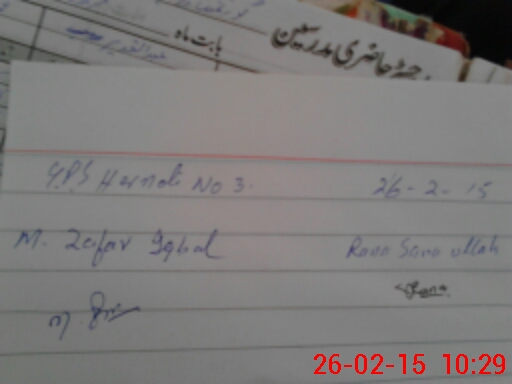 رجسٹر حاضری مدرسین
بابت ماہ
G.P.S Hernoli No 3.
26-2-15
M. Zafar Iqbal
Rana Sana ullah
26-02-15 10:29